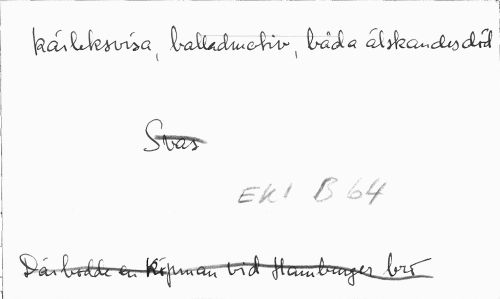 kärleksvisa, balladmotiv, båda älskandes död
Svas
EK1 B 64
Där bodde en köpman vid Hamburger bro